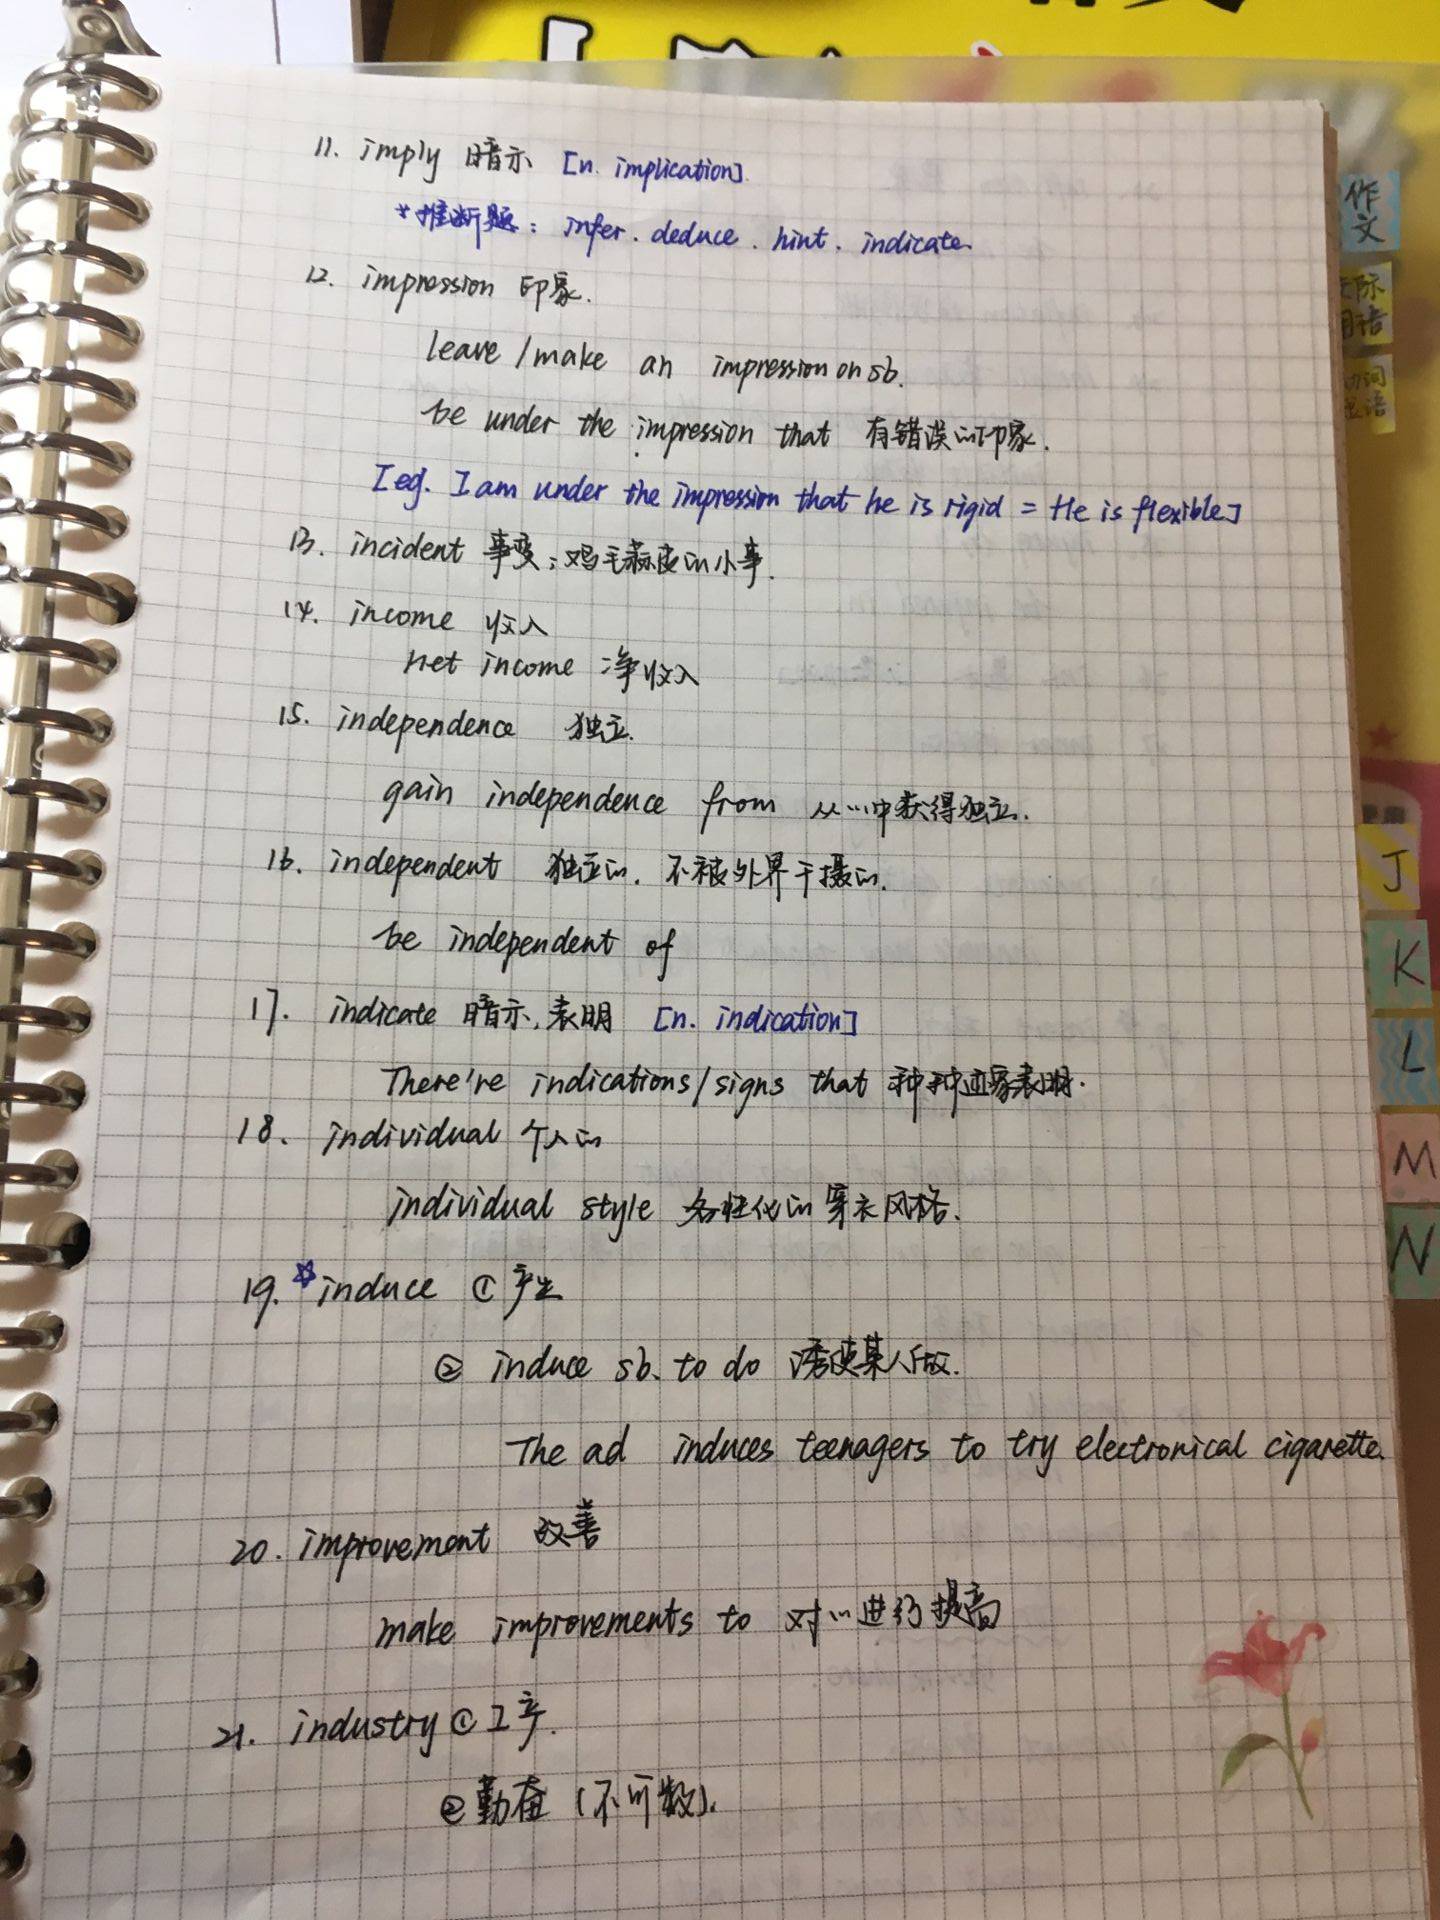 11. imply 暗示 [n. implication]
*推断题: infer. deduce. hint. indicate.
12. impression 印象.
leave /make an impression on sb.
be under the impression that 有错误的印象.
[eg. I am under the impression that he is rigid = He is flexible]
13. incident 事变;鸡毛蒜皮的小事.
14. income 收入
net income 净收入
15. independence 独立.
gain independence from 从…中获得独立.
16. independent 独立的. 不被外界干摄的.
be independent of
17. indicate 暗示,表明 [n. indication]
There're indications/signs that 种种迹象表明.
18. individual 个人的
individual style 个性化的穿衣风格.
19. ☆induce ①产生
② induce sb. to do 诱使某人做.
The ad induces teenagers to try electronical cigarette.
20. improvement 改善
make improvements to 对…进行提高
21. industry ①工产.
②勤奋 (不可数).
作
文
J
K
L
M
N